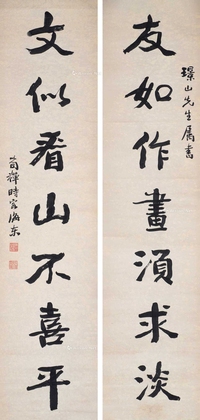 友如作畫須求淡
璟山先生屬書
文似看山不喜平
苟釋時客滬東